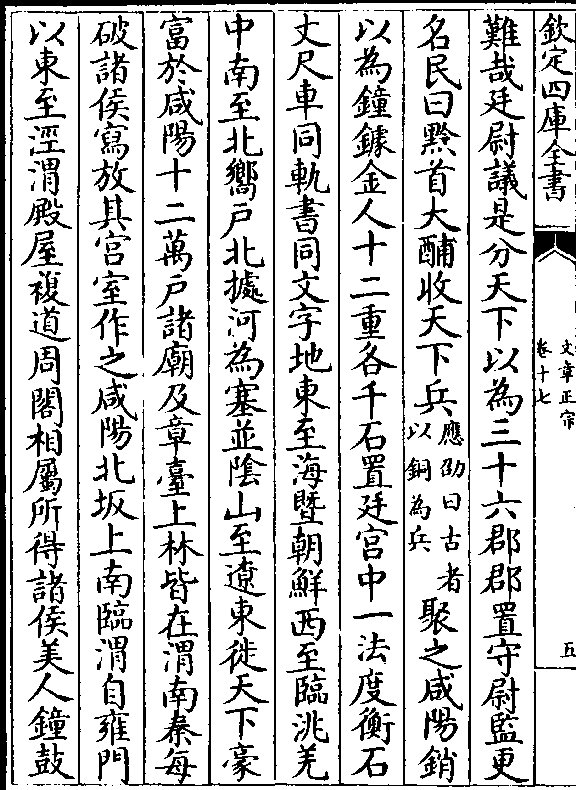 欽定四庫全書
文章正宗
卷十七
五
難哉廷尉議是分天下以為三十六郡郡置守尉監更
名民曰黔首大酺收天下兵應劭曰古者以銅為兵聚之咸陽銷
以為鐘鐻金人十二重各千石置廷宮中一法度衡石
丈尺車同軌書同文字地東至海暨朝鮮西至臨洮羌
中南至北嚮戶北據河為塞並陰山至遼東徙天下豪
富於咸陽十二萬戶諸廟及章臺上林皆在渭南秦每
破諸侯寫放其宮室作之咸陽北坂上南臨渭自雍門
以東至涇渭殿屋複道周閣相屬所得諸侯美人鐘鼓